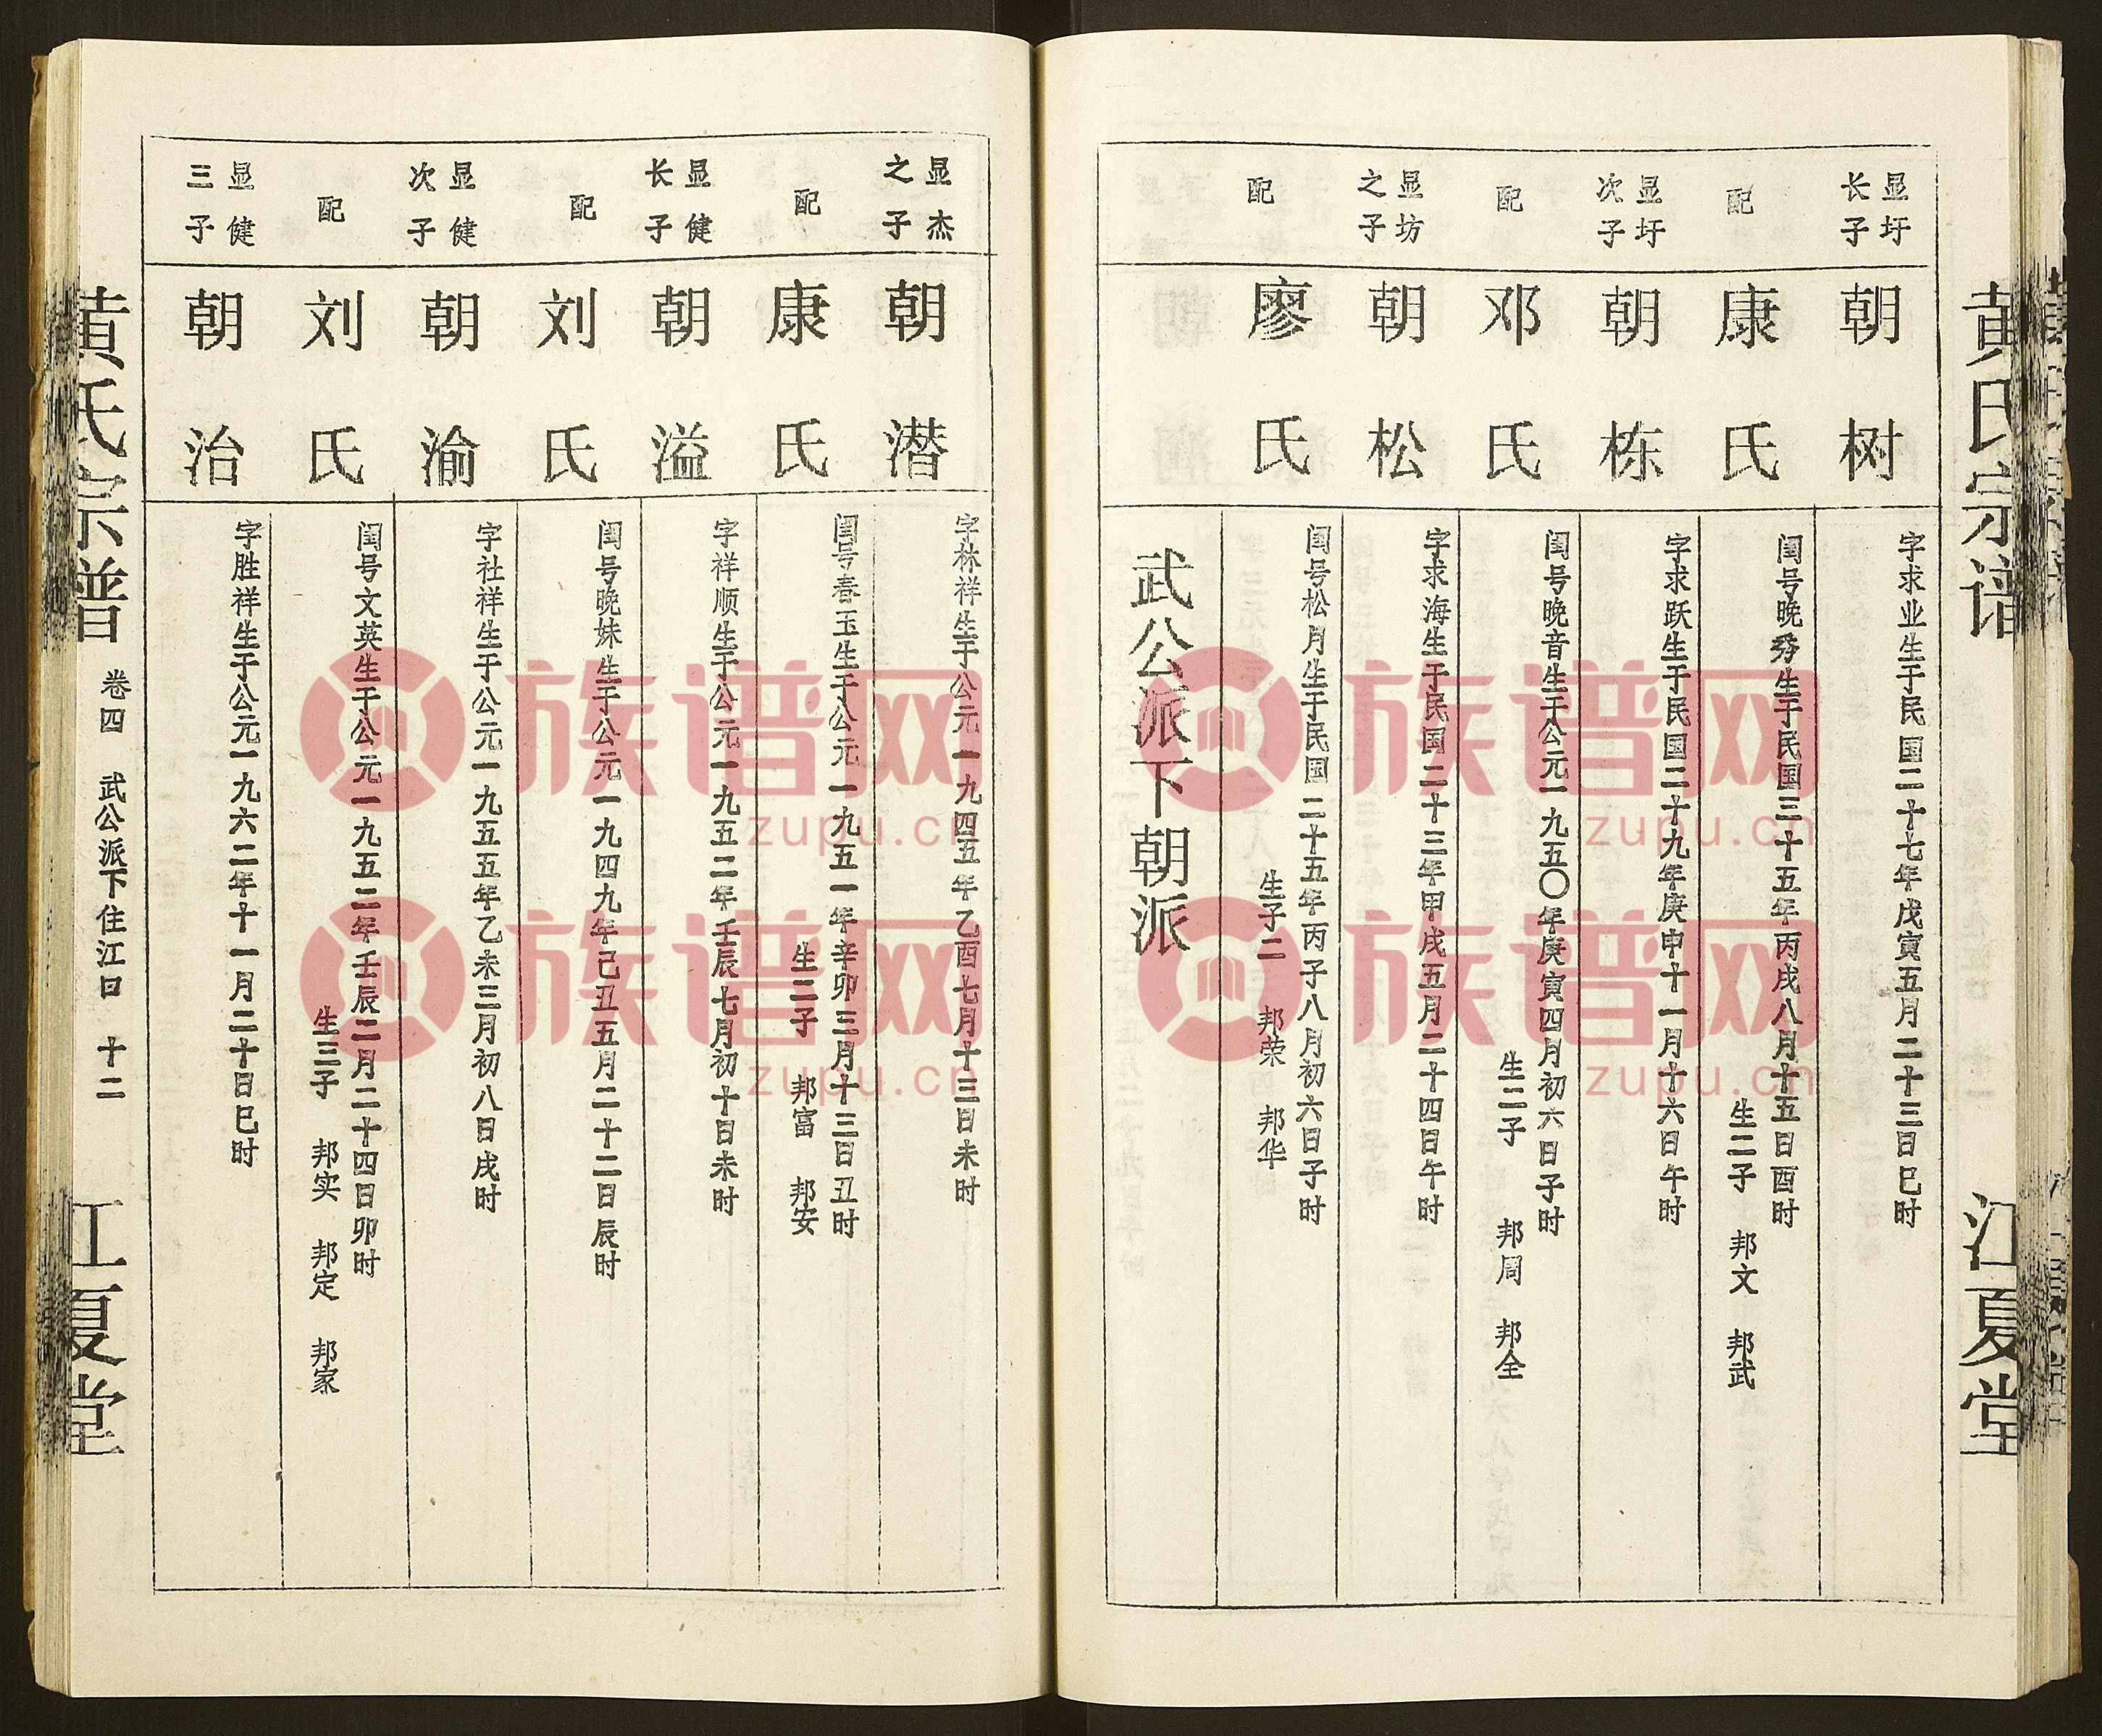 黄氏宗谱
江夏堂
显圩
长子
朝树
字求业生于民国二十七年戊寅五月二十三日巳时
配
康氏
闺号晚 生于民国三十五年丙戌八月十五日酉时
生二子 邦文 邦武
显圩
次子
朝栋
字求跃生于民国二十九年庚申十一月十六日午时
配
邓氏
闺号晚音生于公元一九五〇年庚寅四月初六日子时
生二子 邦周 邦全
显坊
之子
朝松
字求海生于民国二十三年甲戌五月二十四日午时
配
廖氏
闺号松月生于民国二十五年丙子八月初六日子时
生子二 邦荣 邦华
武公派下朝派
显杰
之子
朝潜
字林祥生于公元一九四五年乙酉七月十三日未时
配
康氏
闺号春玉生于公元一九五一年辛卯三月十三日丑时
生二子 邦富 邦安
显健
长子
朝溢
字祥顺生于公元一九五二年壬辰七月初十日未时
配
刘氏
闺号晚妹生于公元一九四九年己丑五月二十二日辰时
显健
次子
朝渝
字社祥生于公元一九五五年乙未三月初八日戌时
配
刘氏
闺号文英生于公元一九五二年壬辰二月二十四日卯时
生三子 邦实 邦定 邦家
显健
三子
朝治
字胜祥生于公元一九六二年十一月二十日巳时
黄氏宗谱 卷四 武公派下住江口 十二 江夏堂
族谱网
zupu.cn
族谱网
zupu.cn
族谱网
zupu.cn
族谱网
zupu.cn